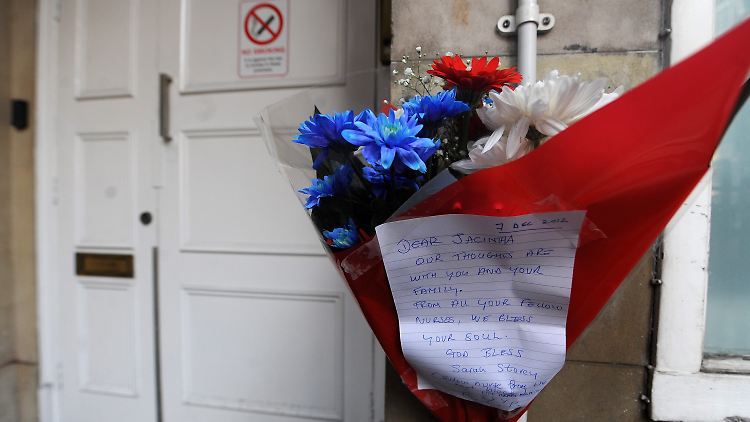 NO SMOKING
7 DEC 2012
DEAR JACINTHA
OUR THOUGHTS ARE
WITH YOU AND YOUR
FAMILY.
FROM ALL YOUR FELLOW
NURSES, WE BLESS
YOUR SOUL.
GOD BLESS
Sarah Storey